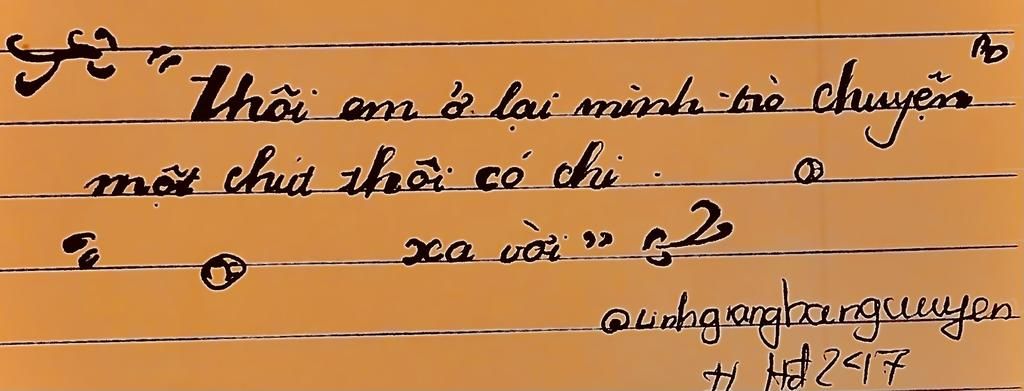 "Thôi em ở lại mình trò chuyện
một chút thôi có chi.
xa vời"